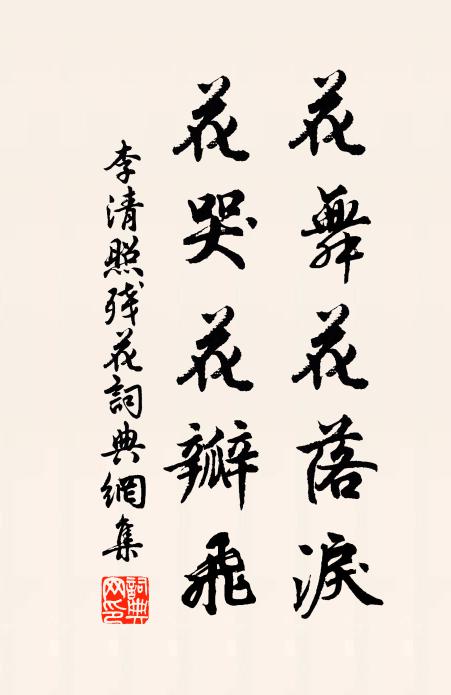 花舞花落淚
花哭花瓣飛
李清照残花詞典網集
詞典
网印